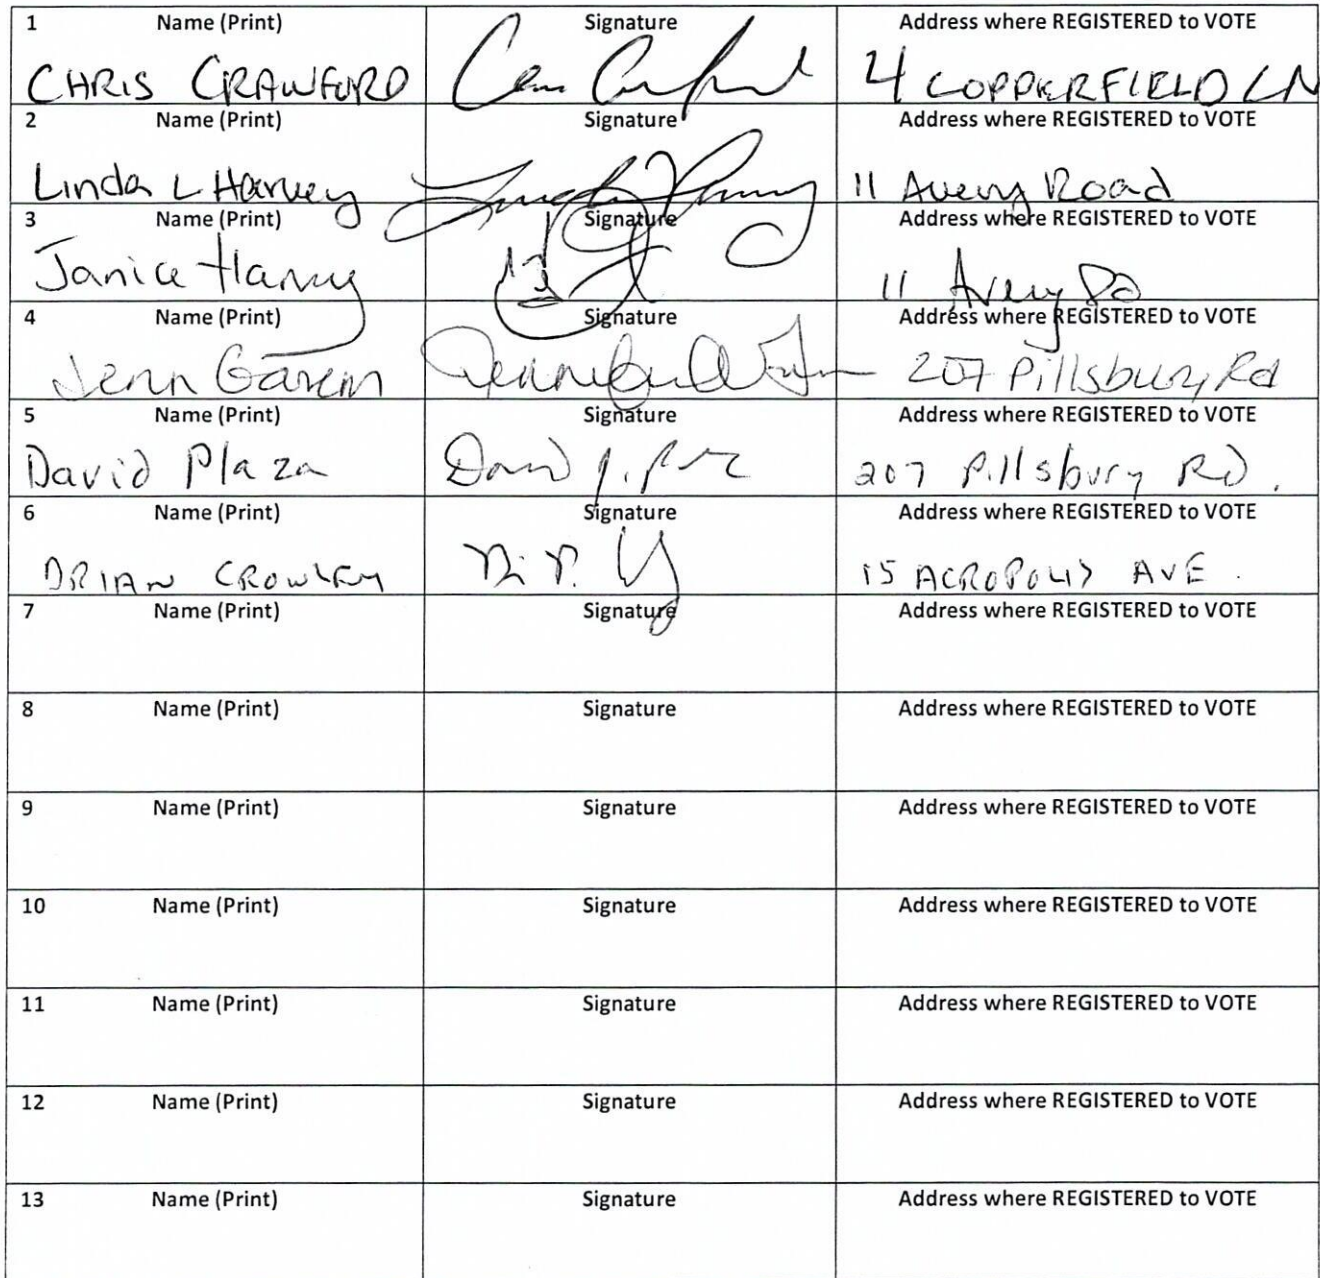 1 Name (Print) Signature Address where REGISTERED to VOTE
CHRIS CRAWFORD 4 COPPERFIELD LN
2 Name (Print) Signature Address where REGISTERED to VOTE
Linda L Harvey 11 Avery Road
3 Name (Print) Signature Address where REGISTERED to VOTE
Janice Harvey 11 Avery Rd
4 Name (Print) Signature Address where REGISTERED to VOTE
Jenn Ganem 207 Pillsbury Rd
5 Name (Print) Signature Address where REGISTERED to VOTE
David Plaza 207 Pillsbury RD.
6 Name (Print) Signature Address where REGISTERED to VOTE
BRIAN CROWLEY 15 ACROPOLIS AVE.
7 Name (Print) Signature Address where REGISTERED to VOTE
8 Name (Print) Signature Address where REGISTERED to VOTE
9 Name (Print) Signature Address where REGISTERED to VOTE
10 Name (Print) Signature Address where REGISTERED to VOTE
11 Name (Print) Signature Address where REGISTERED to VOTE
12 Name (Print) Signature Address where REGISTERED to VOTE
13 Name (Print) Signature Address where REGISTERED to VOTE